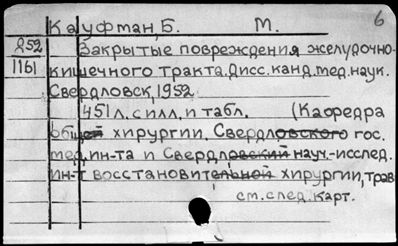 6
Кауфман, Б. М.
Д52 Закрытые повреждения желудочно-
1161 кишечного тракта. Дисс. канд. мед. наук.
Свердловск, 1952.
451 л. с илл. и табл. (Кафедра
общей хирургии, Свердловского гос.
мед. ин-та и Свердловский науч.-исслед.
ин-т восстановительной хирургии, трав
см. след. карт.